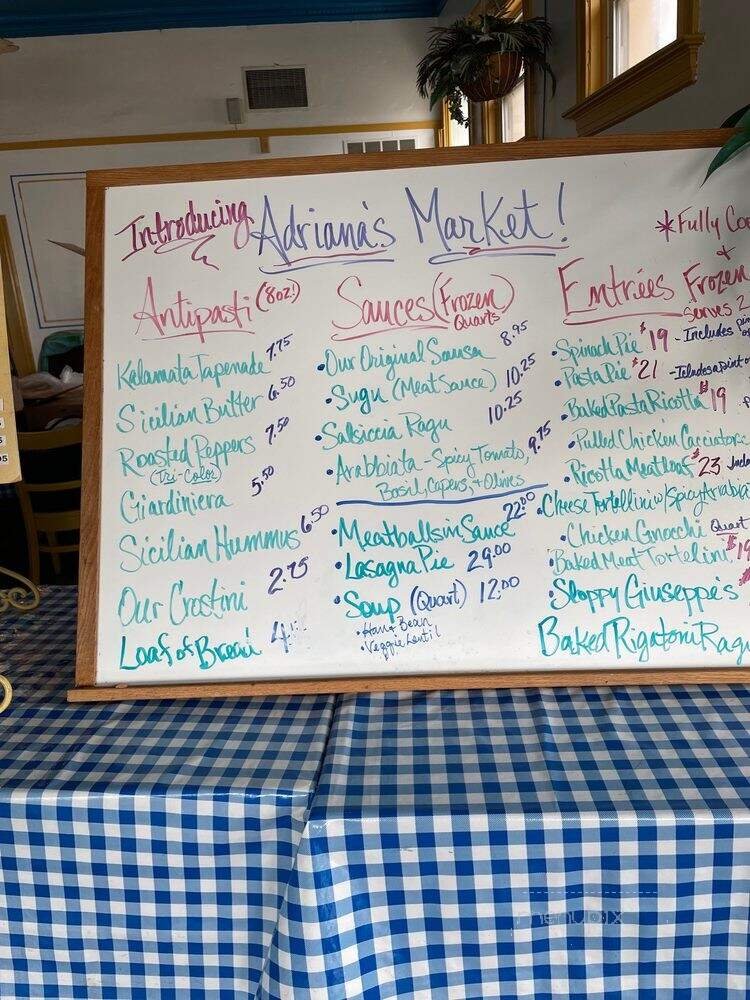 Introducing Adriana's Market!
Antipasti (8oz!)
Kalamata Tapenade 7.75
Sicilian Butter 6.50
Roasted Peppers 7.50
(Tri-Color)
Giardiniera 5.50
Sicilian Hummus 6.50
Our Crostini 2.75
Loaf of Bread 4
Sauces (Frozen)
Quarts
•Our Original Salsa 8.95
•Sugu (Meat Sauce) 10.25
•Salsiccia Ragu 10.25
•Arabbiata - Spicy Tomato, 9.75
Basil, Capers, + Olives
•Meatballs in Sauce 22.00
•Lasagna Pie 29.00
•Soup (Quart) 12.00
•Ham + Bean
•Veggie Lentil
*Fully
+
Entrées Frozen
Serves 2
•Spinach Pie $19 - Includes
•Pasta Pie $21 - Includes a pint
•Baked Pasta Ricotta $19
•Pulled Chicken
•Ricotta Meatloaf $23
•Cheese Tortellini w/ Spicy
•Chicken Gnocchi Quart
•Baked Meat Tortellini $19
•Sloppy Giuseppe's $
Baked Rigatoni Ragu
menupix